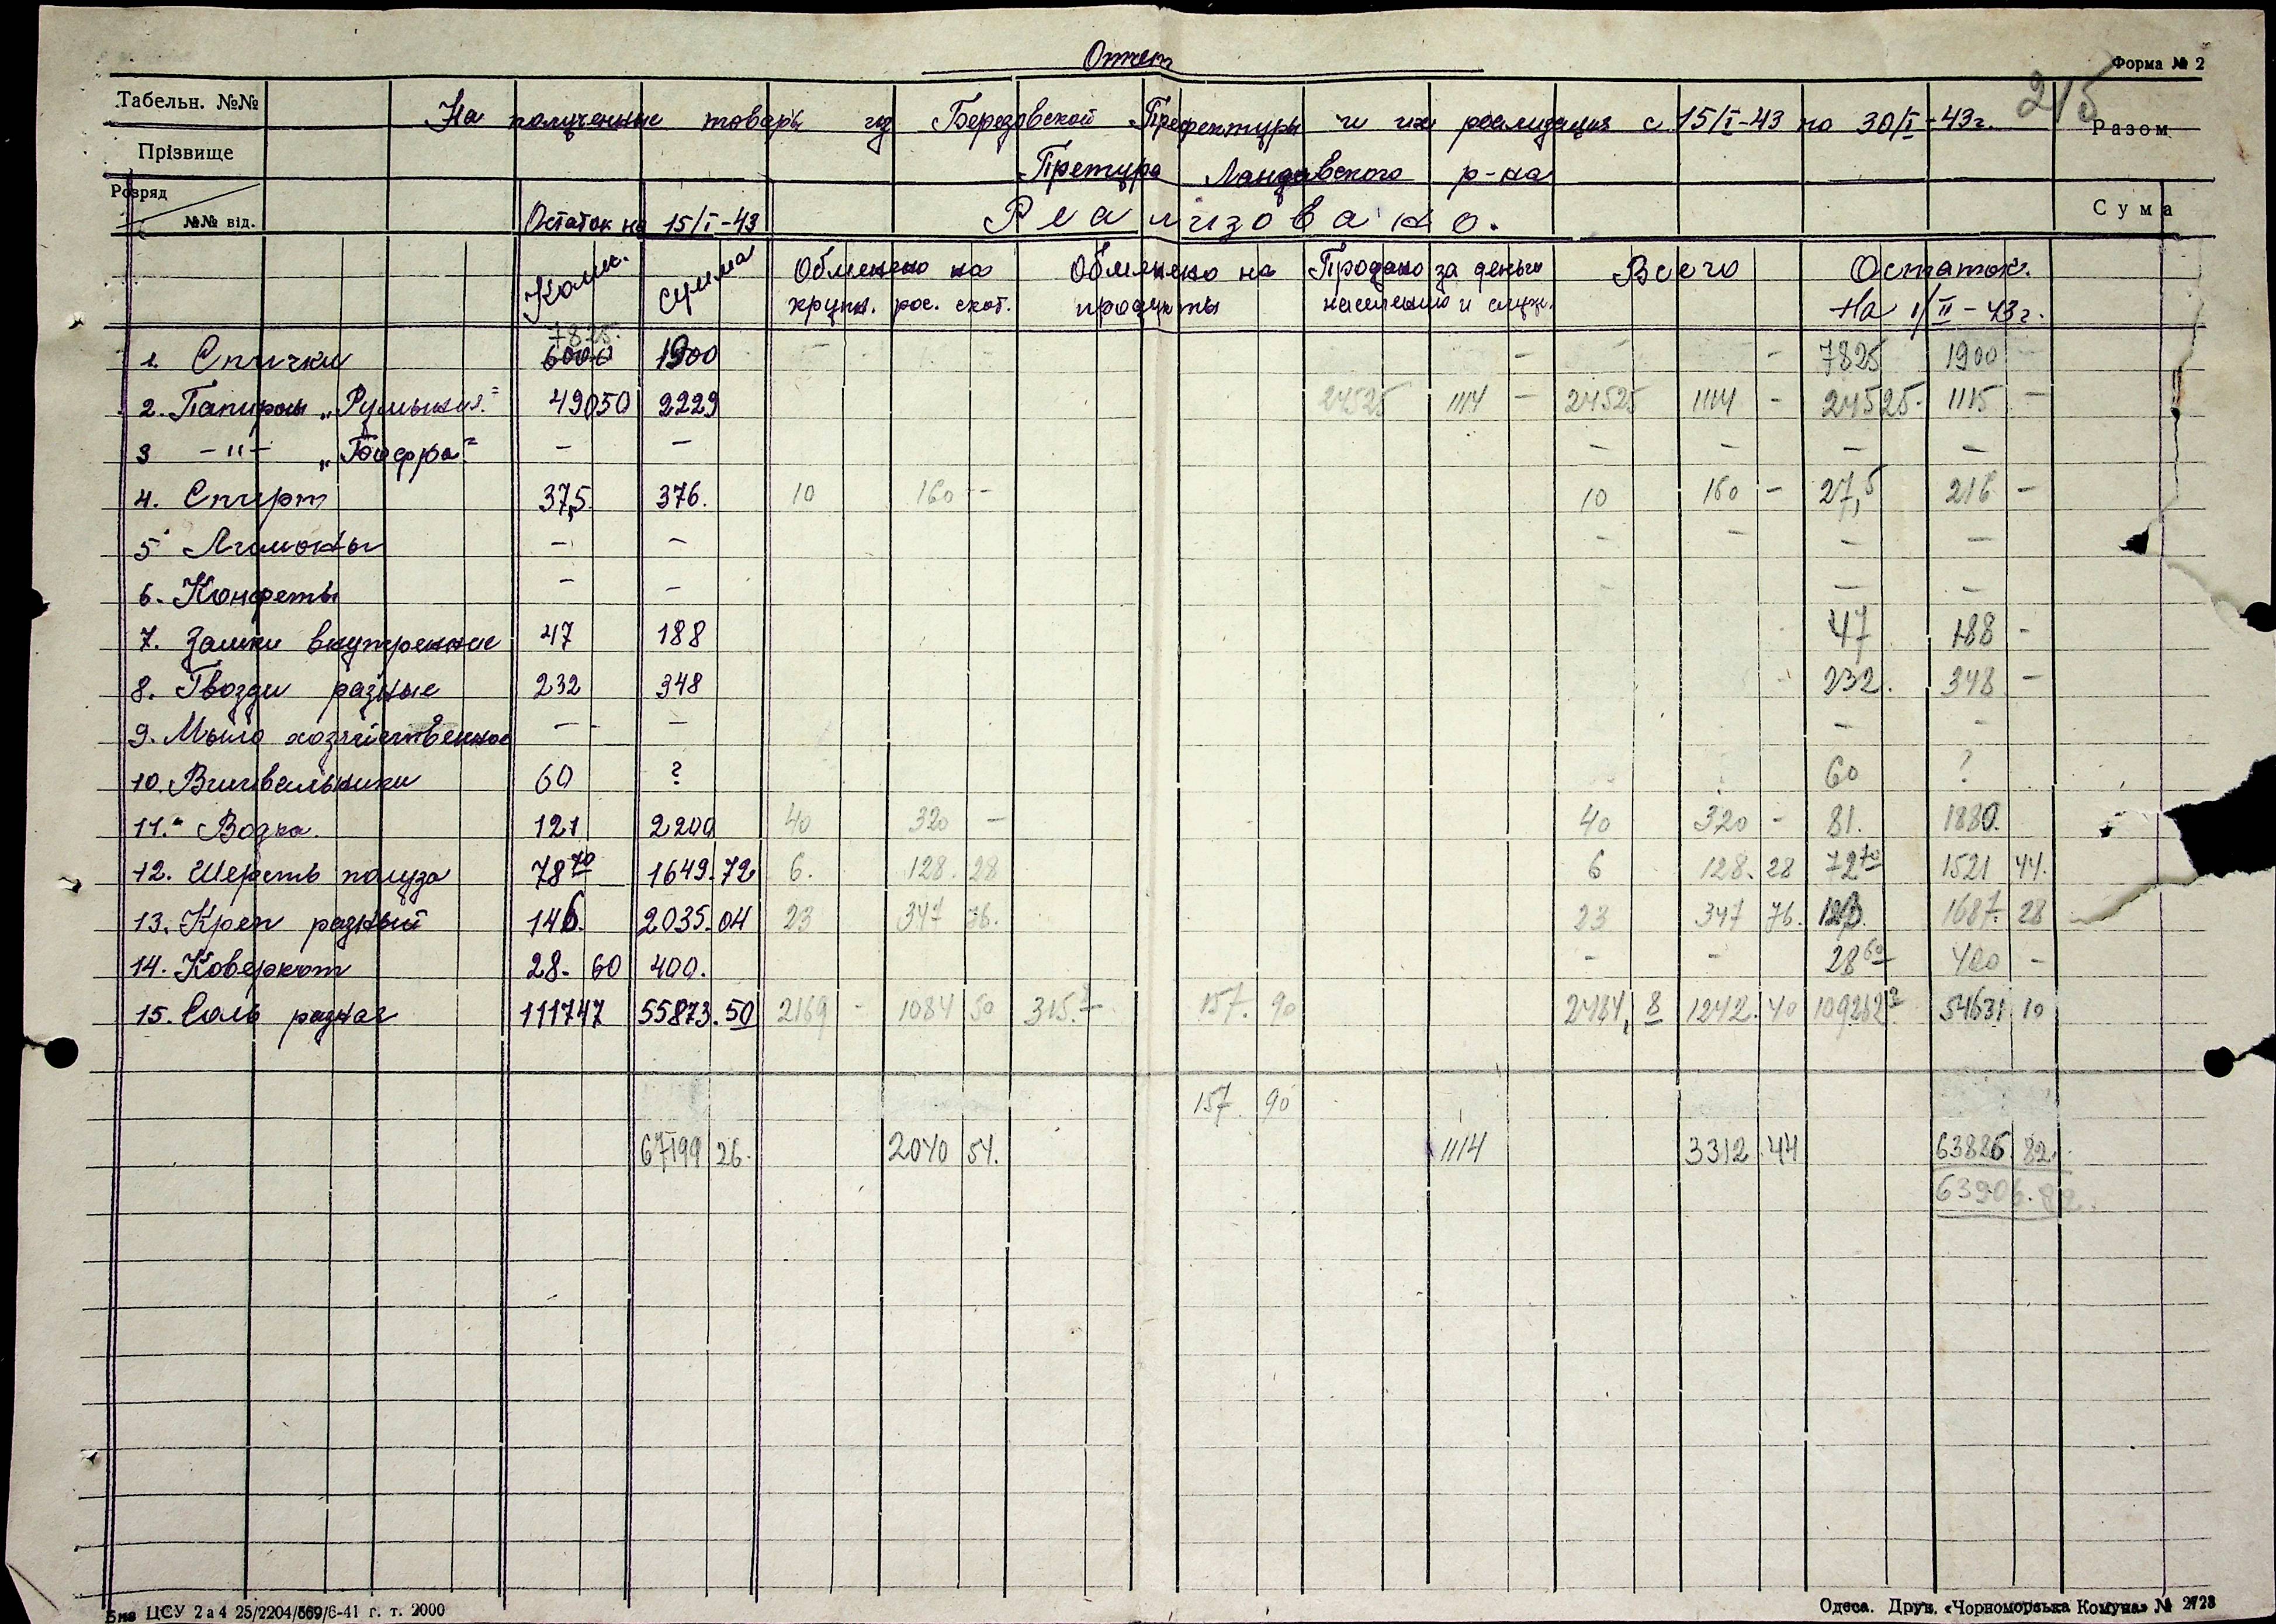 Отчет
Форма № 2
215
Табельн. №№
На полученные товары от Березовской Префектуры и их реализация с 15/I-43 по 30/I-43г.
Разом
Прізвище
Претура Ландавского р-на
Розряд
№№ від.
Остаток на 15/I-43
Реализовано.
Сума
Колич. Сумма Обменено на крупн. рог. скот. Обменено на продукты Продано за деньги населению и служ. Всего Остаток. На 1/II-43г.
7825.
1. Спички 6000 1900 - - - 7825 1900 -
2. Папиросы „Румыния" 49050 2229 24525 1114 - 24525 1114 - 24525. 1115 -
3 -"- - - - - - -
4. Спирт 37,5. 376. 10 160 - 10 160 - 27,5 216 -
5 Лимоны - - - - - -
6. Конфеты - - - - -
7. Замки внутренние 47 188 47 188 -
8. Гвозди разные 232 348 232. 348 -
9. Мыло хозяйственное - - - -
10. 60 ? 60 ?
11. Водка 121 2200 40 320 - 40 320 - 81. 1880.
12. Шерсть 78 70 1649.72 6. 128.28 6 128.28 72 70 1521 44.
13. Креп разный 146. 2035.04 23 347 76. 23 347 76. 123. 1687.28
14. Коверкот 28.60 400. - - 28 60 400 -
15. Соль разная 111747 55873.50 2169 - 1084 50 315.8 157.90 2484,8 1242.40 109262 2 54631 10
157.90
67199 26. 2040 54. 1114 3312.44 63886 82.
63906.82.
Бив ЦСУ 2а4 25/2204/569/6-41 г. т. 2000
Одеса. Друк. «Чорноморська Комуна» № 2728